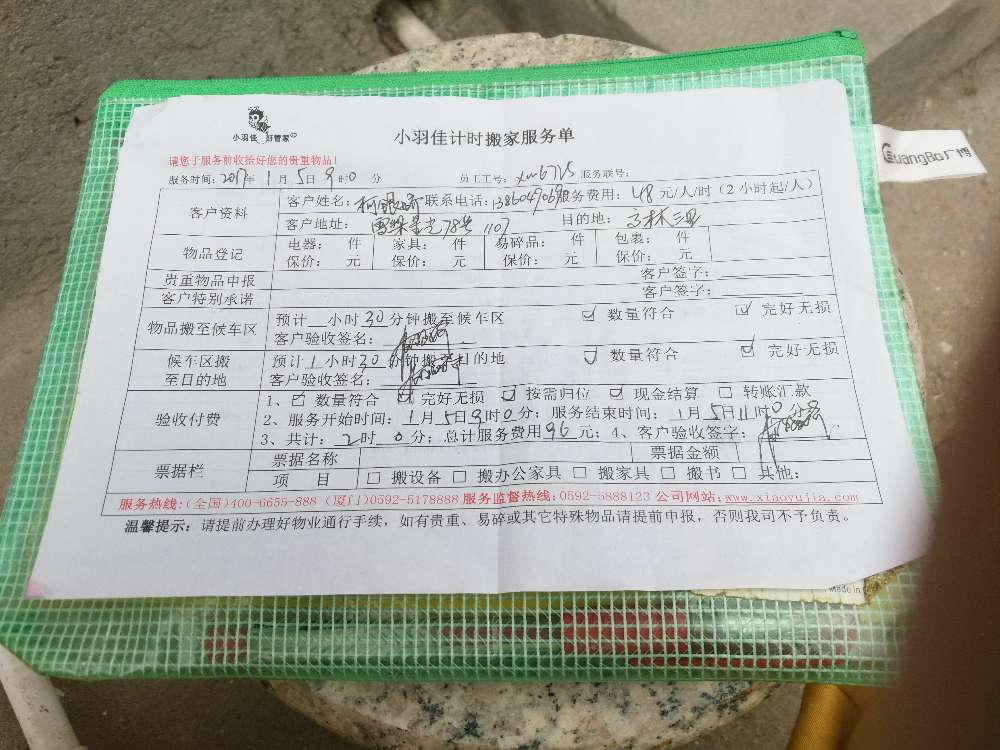 小羽佳 好管家
小羽佳计时搬家服务单
GuangBo广博
请您于服务前收拾好您的贵重物品！
服务时间：2017年 1月 5日 9时0分 员工工号：xm6715 服务联号：
客户资料 客户姓名： 联系电话： 服务费用：48元/人/时（2小时起/人）
客户地址： 78号 1107 目的地：
物品登记 电器： 件 家具： 件 易碎品： 件 包装： 件
保价： 元 保价： 元 保价： 元 保价： 元
贵重物品申报 客户签字：
客户特别承诺 客户签字：
物品搬至候车区 预计 小时30分钟搬至候车区 ☑ 数量符合 ☑ 完好无损
客户验收签名：
候车区搬至目的地 预计1小时30分钟搬至目的地 ☑ 数量符合 ☑ 完好无损
客户验收签名：
验收付费 1、☑ 数量符合 ☑ 完好无损 ☑ 按需归位 ☑ 现金结算 □ 转账汇款
2、服务开始时间：1月5日9时0分；服务结束时间：1月5日11时0分
3、共计：2时0分；总计服务费用96元；4、客户验收签字：
票据栏 票据名称 票据金额
项 目 □ 搬设备 □ 搬办公家具 □ 搬家具 □ 搬书 □ 其他：
服务热线：(全国)400-6655-888 (厦门)0592-5178888 服务监督热线：0592-5888123 公司网站：www.xiaoyujia.com
温馨提示：请提前办理好物业通行手续，如有贵重、易碎或其它特殊物品请提前申报，否则我司不予负责。
Made in